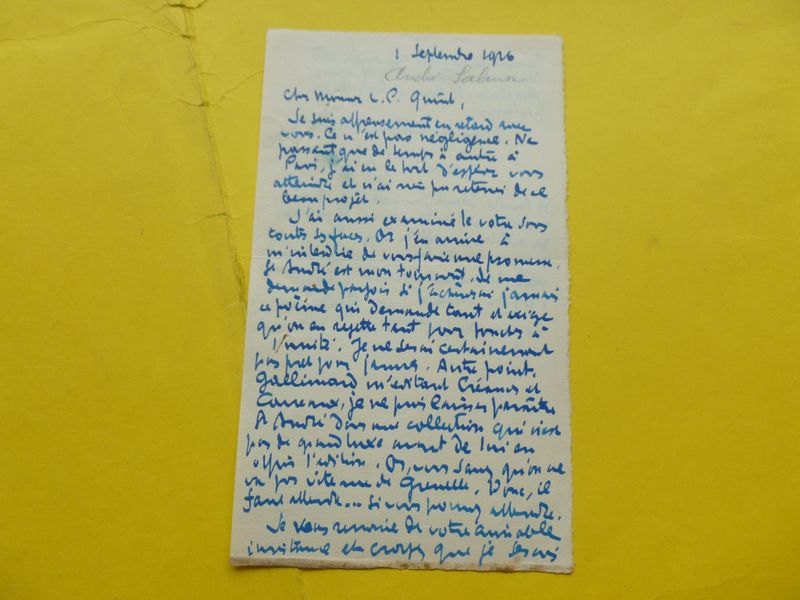 1 Septembre 1926
André Salmon
Cher Monsieur L. P. Quint,
Je suis affreusement en retard avec
vous. Ce n'est pas négligence. Ne
passant que de temps à autre à
Paris, j'ai eu le tort d'espérer vous
atteindre et n'ai rien pu retenir de ce
beau projet.
J'ai aussi examiné le votre sous
toutes ses faces. Or j'en arrive à
m'interdire de vous faire une promesse.
St André est mon tourment. Je me
demande parfois si j'achèverai jamais
ce poème qui demande tant et exige
qu'on en rejette tant pour
l'unité. Je ne serai certainement
pas prêt pour janvier. Autre point,
Gallimard m'éditant Créances et
Carreaux, je ne puis laisser paraître
St André dans une collection qui n'est
pas de grand luxe avant de lui en
offrir l'édition. Or, vous savez qu'on ne
va pas vite rue de Grenelle. Donc, il
faut attendre... si vous pouvez attendre.
Je vous remercie de votre aimable
insistance et croyez que je serais